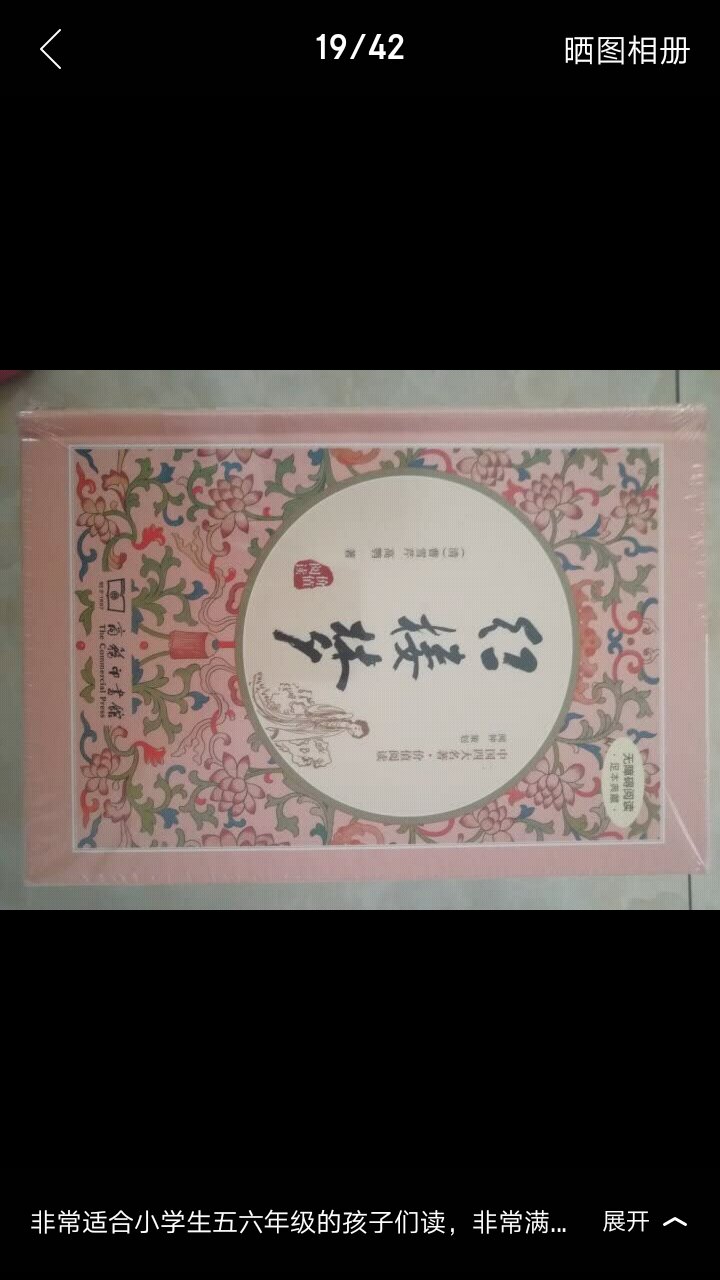 19/42
晒图相册
无障碍阅读
·足本典藏·
中国四大名著·价值阅读
红楼梦
(清)曹雪芹 高鹗 著
价值
阅读
商务印书馆
The Commercial Press
非常适合小学生五六年级的孩子们读，非常满...
展开